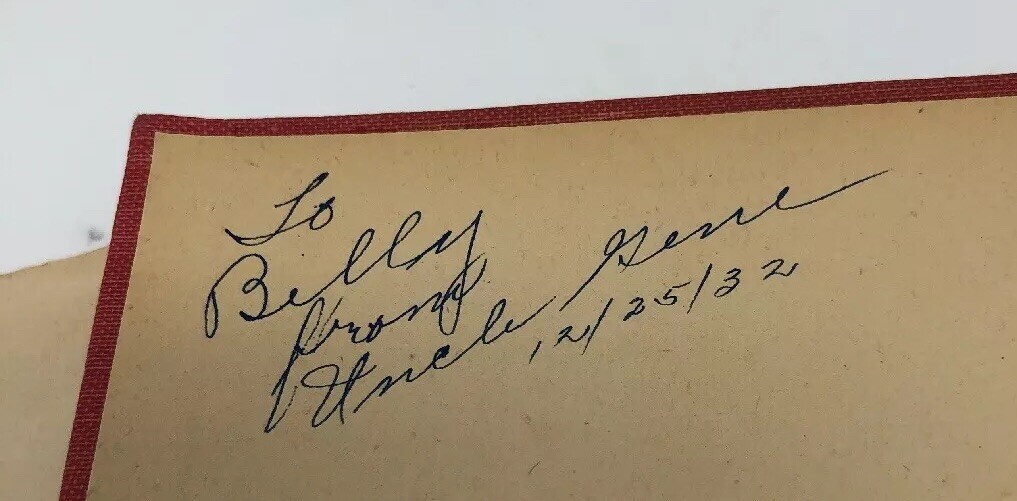 To
Billy
from
Uncle Gene
12/25/32